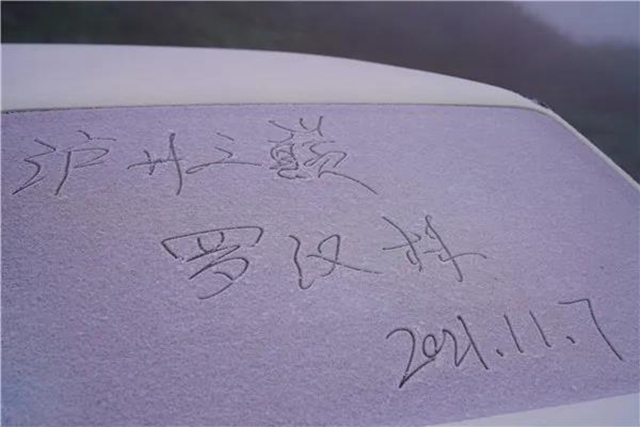 泸州之巅
罗汉林
2021.11.7